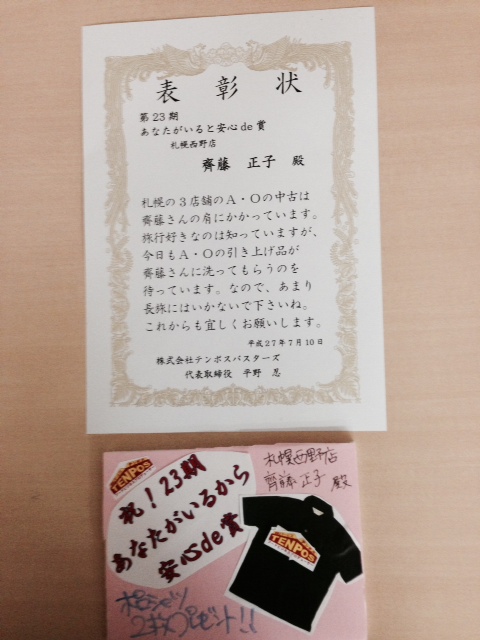 表彰状
第23期
あなたがいると安心de賞
札幌西野店
齊藤 正子 殿
札幌の3店舗のA・Oの中古は
齊藤さんの肩にかかっています。
旅行好きなのは知っていますが、
今日もA・Oの引き上げ品が
齊藤さんに洗ってもらうのを
待っています。なので、あまり
長旅にはいかないで下さいね。
これからも宜しくお願いします。
平成27年7月10日
株式会社テンポスバスターズ
代表取締役 平野 忍
TENPOS
祝!23期
あなたがいるから
安心de賞
札幌西野店
齊藤 正子 殿
TENPOS
ポロシャツ
2枚プレゼント!!